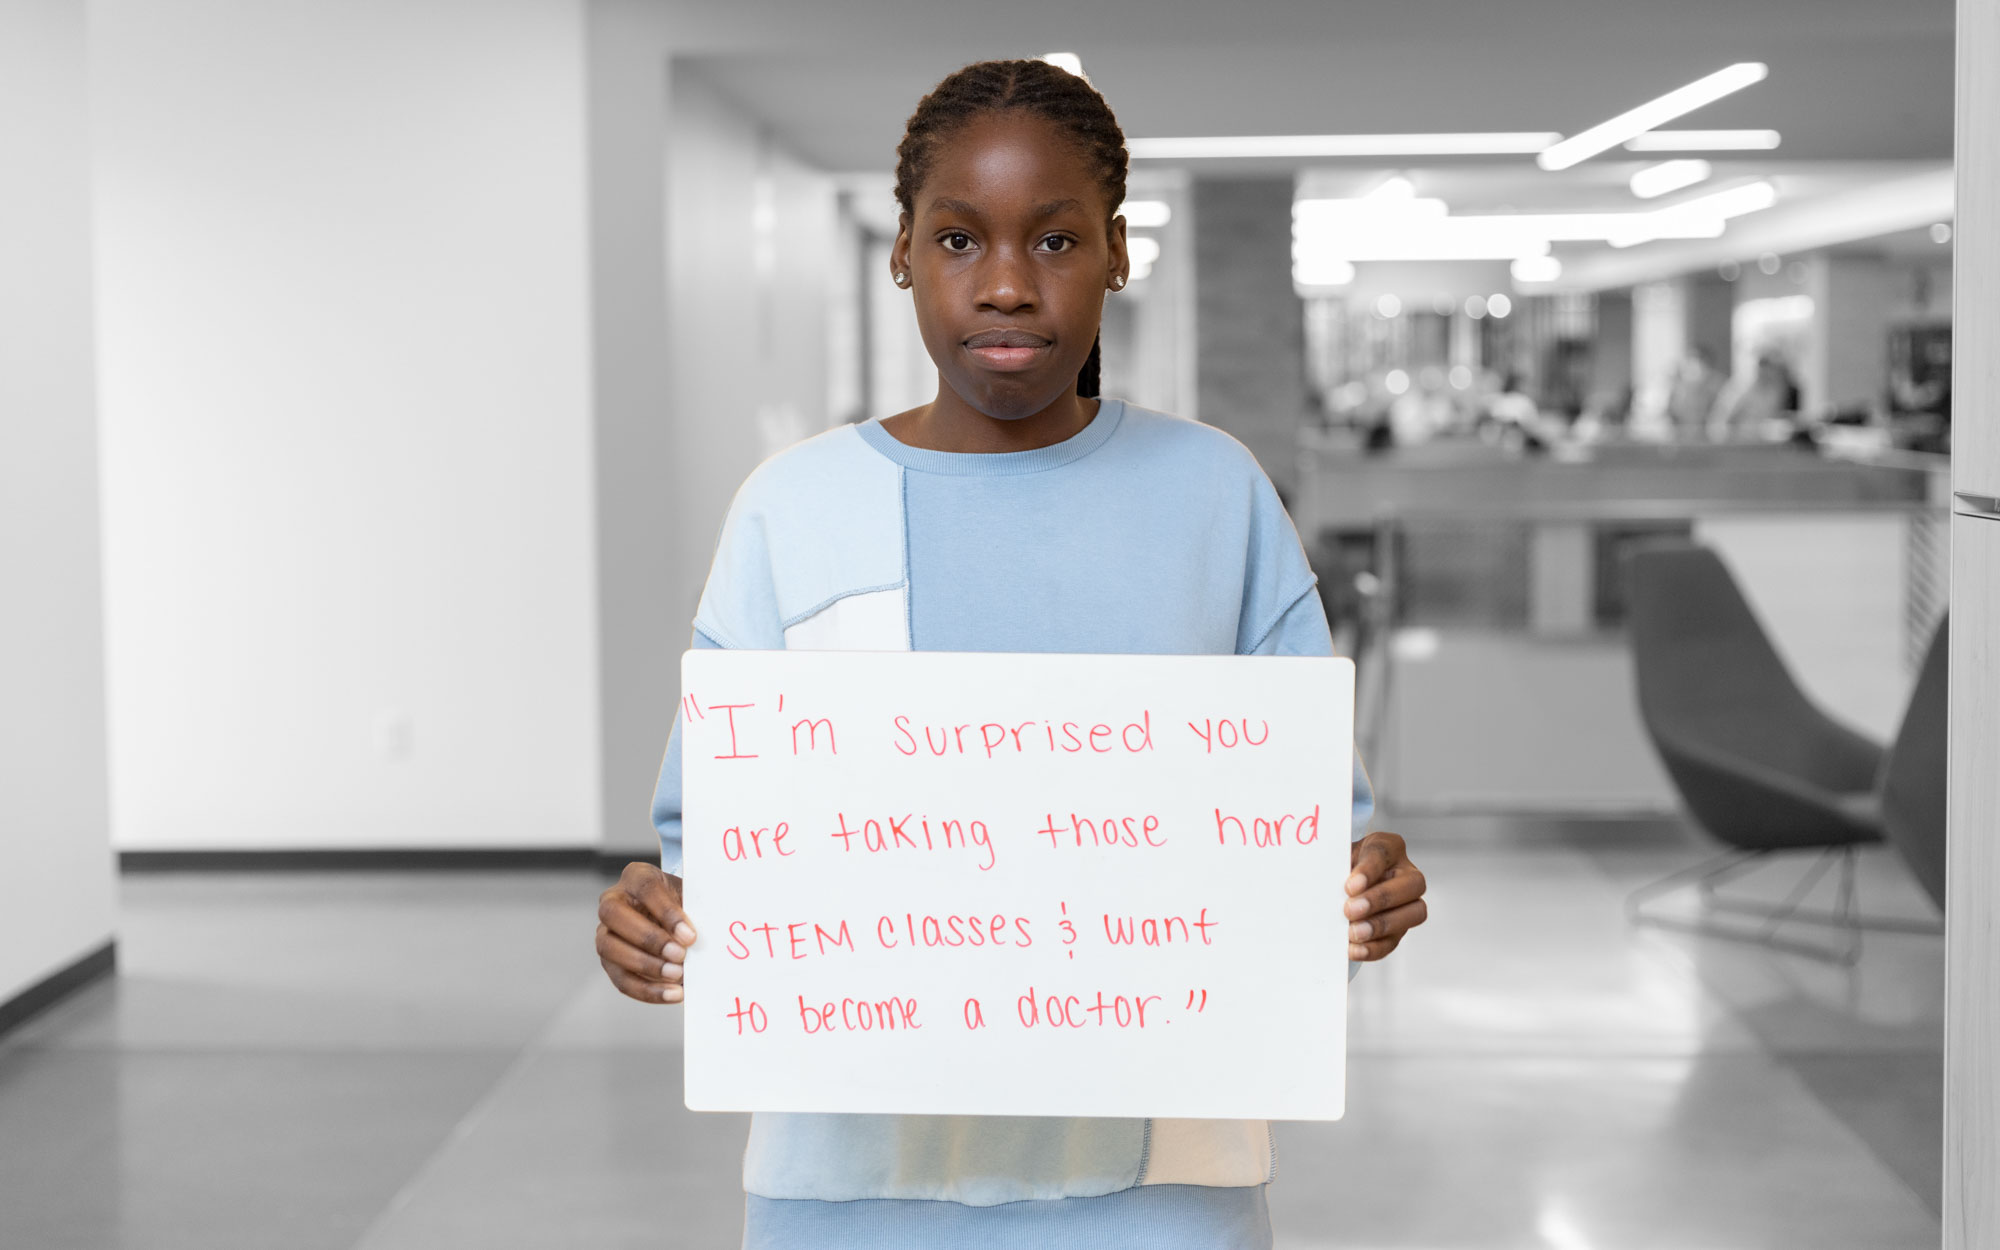 "I'm surprised you
are taking those hard
STEM classes & want
to become a doctor."